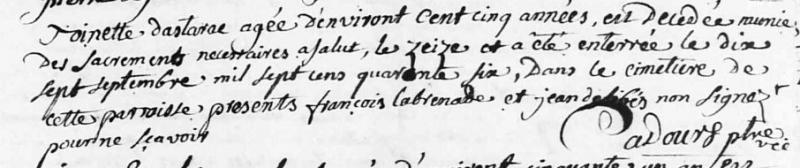 Toinette dastarac agée d'environt cent cinq années, est Decedée munie
Des sacrements necessaires a salut, le zeize et a été enterrée le dix
sept septembre mil sept cens quarante six, Dans le cimetiere de
cette parroisse presents françois labrenade et jean non signez
pour ne sçavoir
adours ptre
vic